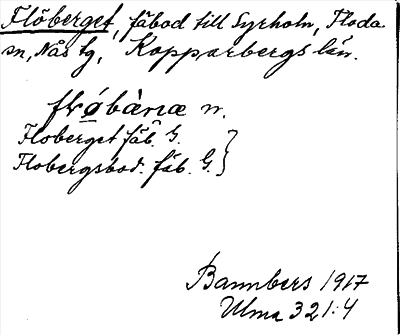 Flöberget, fäbod till Syrholn, Floda
sn, Nås tg, Kopparbergs län.
flo̠bànæ n.
Floberget fäb. G.
Flobergsbod. fäb. G.}
Bannbers 1917
Ulma 321:4